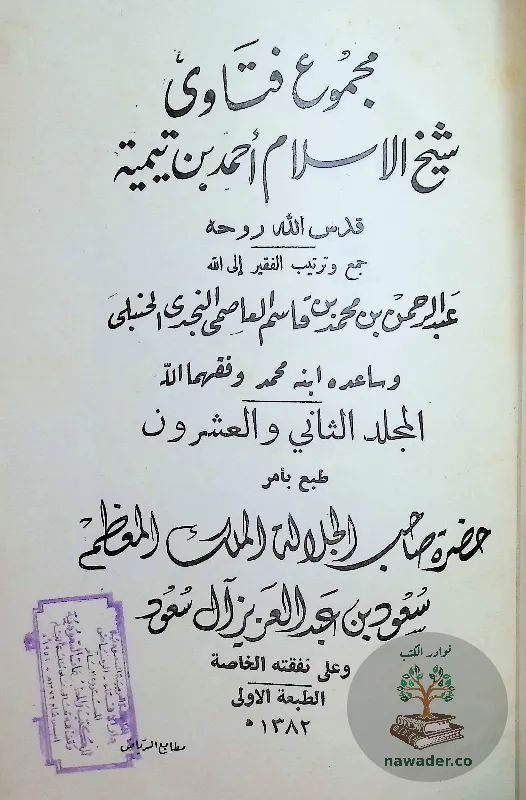 مجموع فتاوى
شيخ الاسلام أحمد بن تيمية
قدس الله روحه
جمع وترتيب الفقير إلى الله
عبد الرحمن بن محمد بن قاسم العاصمى النجدى الحنبلى
وساعده ابنه محمد وفقهما الله
المجلد الثاني والعشرون
طبع بأمر
حضرة صاحب الجلالة الملك المعظم
سعود بن عبد العزيز آل سعود
وعلى نفقته الخاصة
الطبعة الاولى
١٣٨٢ ه
مطابع الرياض
نوادر الكتب
nawader.co